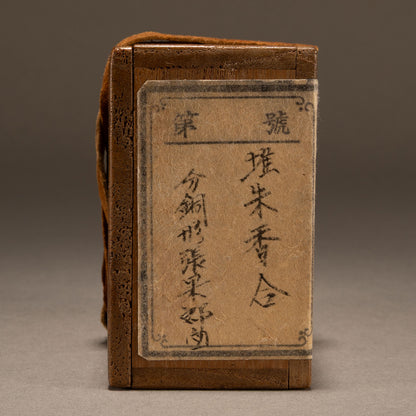 第 號
堆朱香合
分銅形張果郎